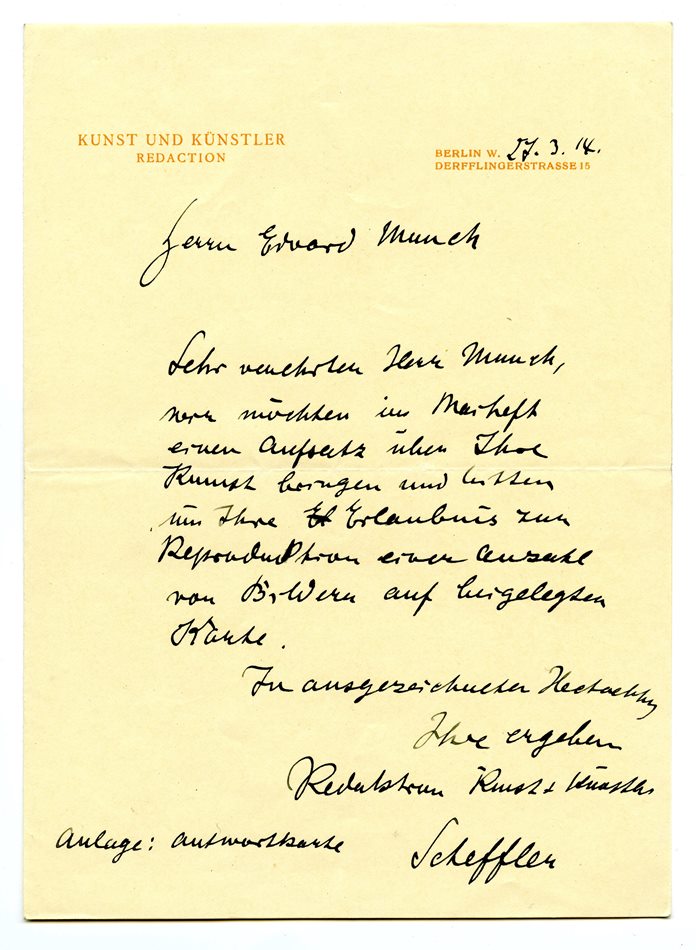 KUNST UND KÜNSTLER
REDACTION
BERLIN W. 27. 3. 14.
DERFFLINGERSTRASSE 15
Herrn Edvard Munch
Sehr verehrter Herr Munch,
wir möchten im Maiheft
einen Aufsatz über Ihre
Kunst bringen und bitten
um Ihre Erlaubnis zur
Reproduktion einer Anzahl
von Bildern auf beigelegter
Karte.
In ausgezeichneter Hochachtung
Ihre ergeben
Redaktion Kunst + Künstler
Scheffler
Anlage: Antwortkarte